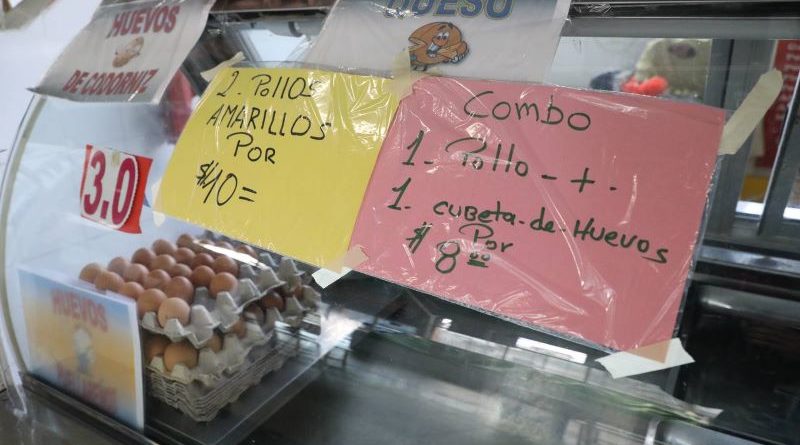 HUEVOS
DE CODORNIZ
QUESO
2. Pollos
AMARILLOS
POR
$10=
COMBO
1- Pollo - + -
1. CUBETA-de-Huevos
Por
$8.00
3.0
HUEVOS